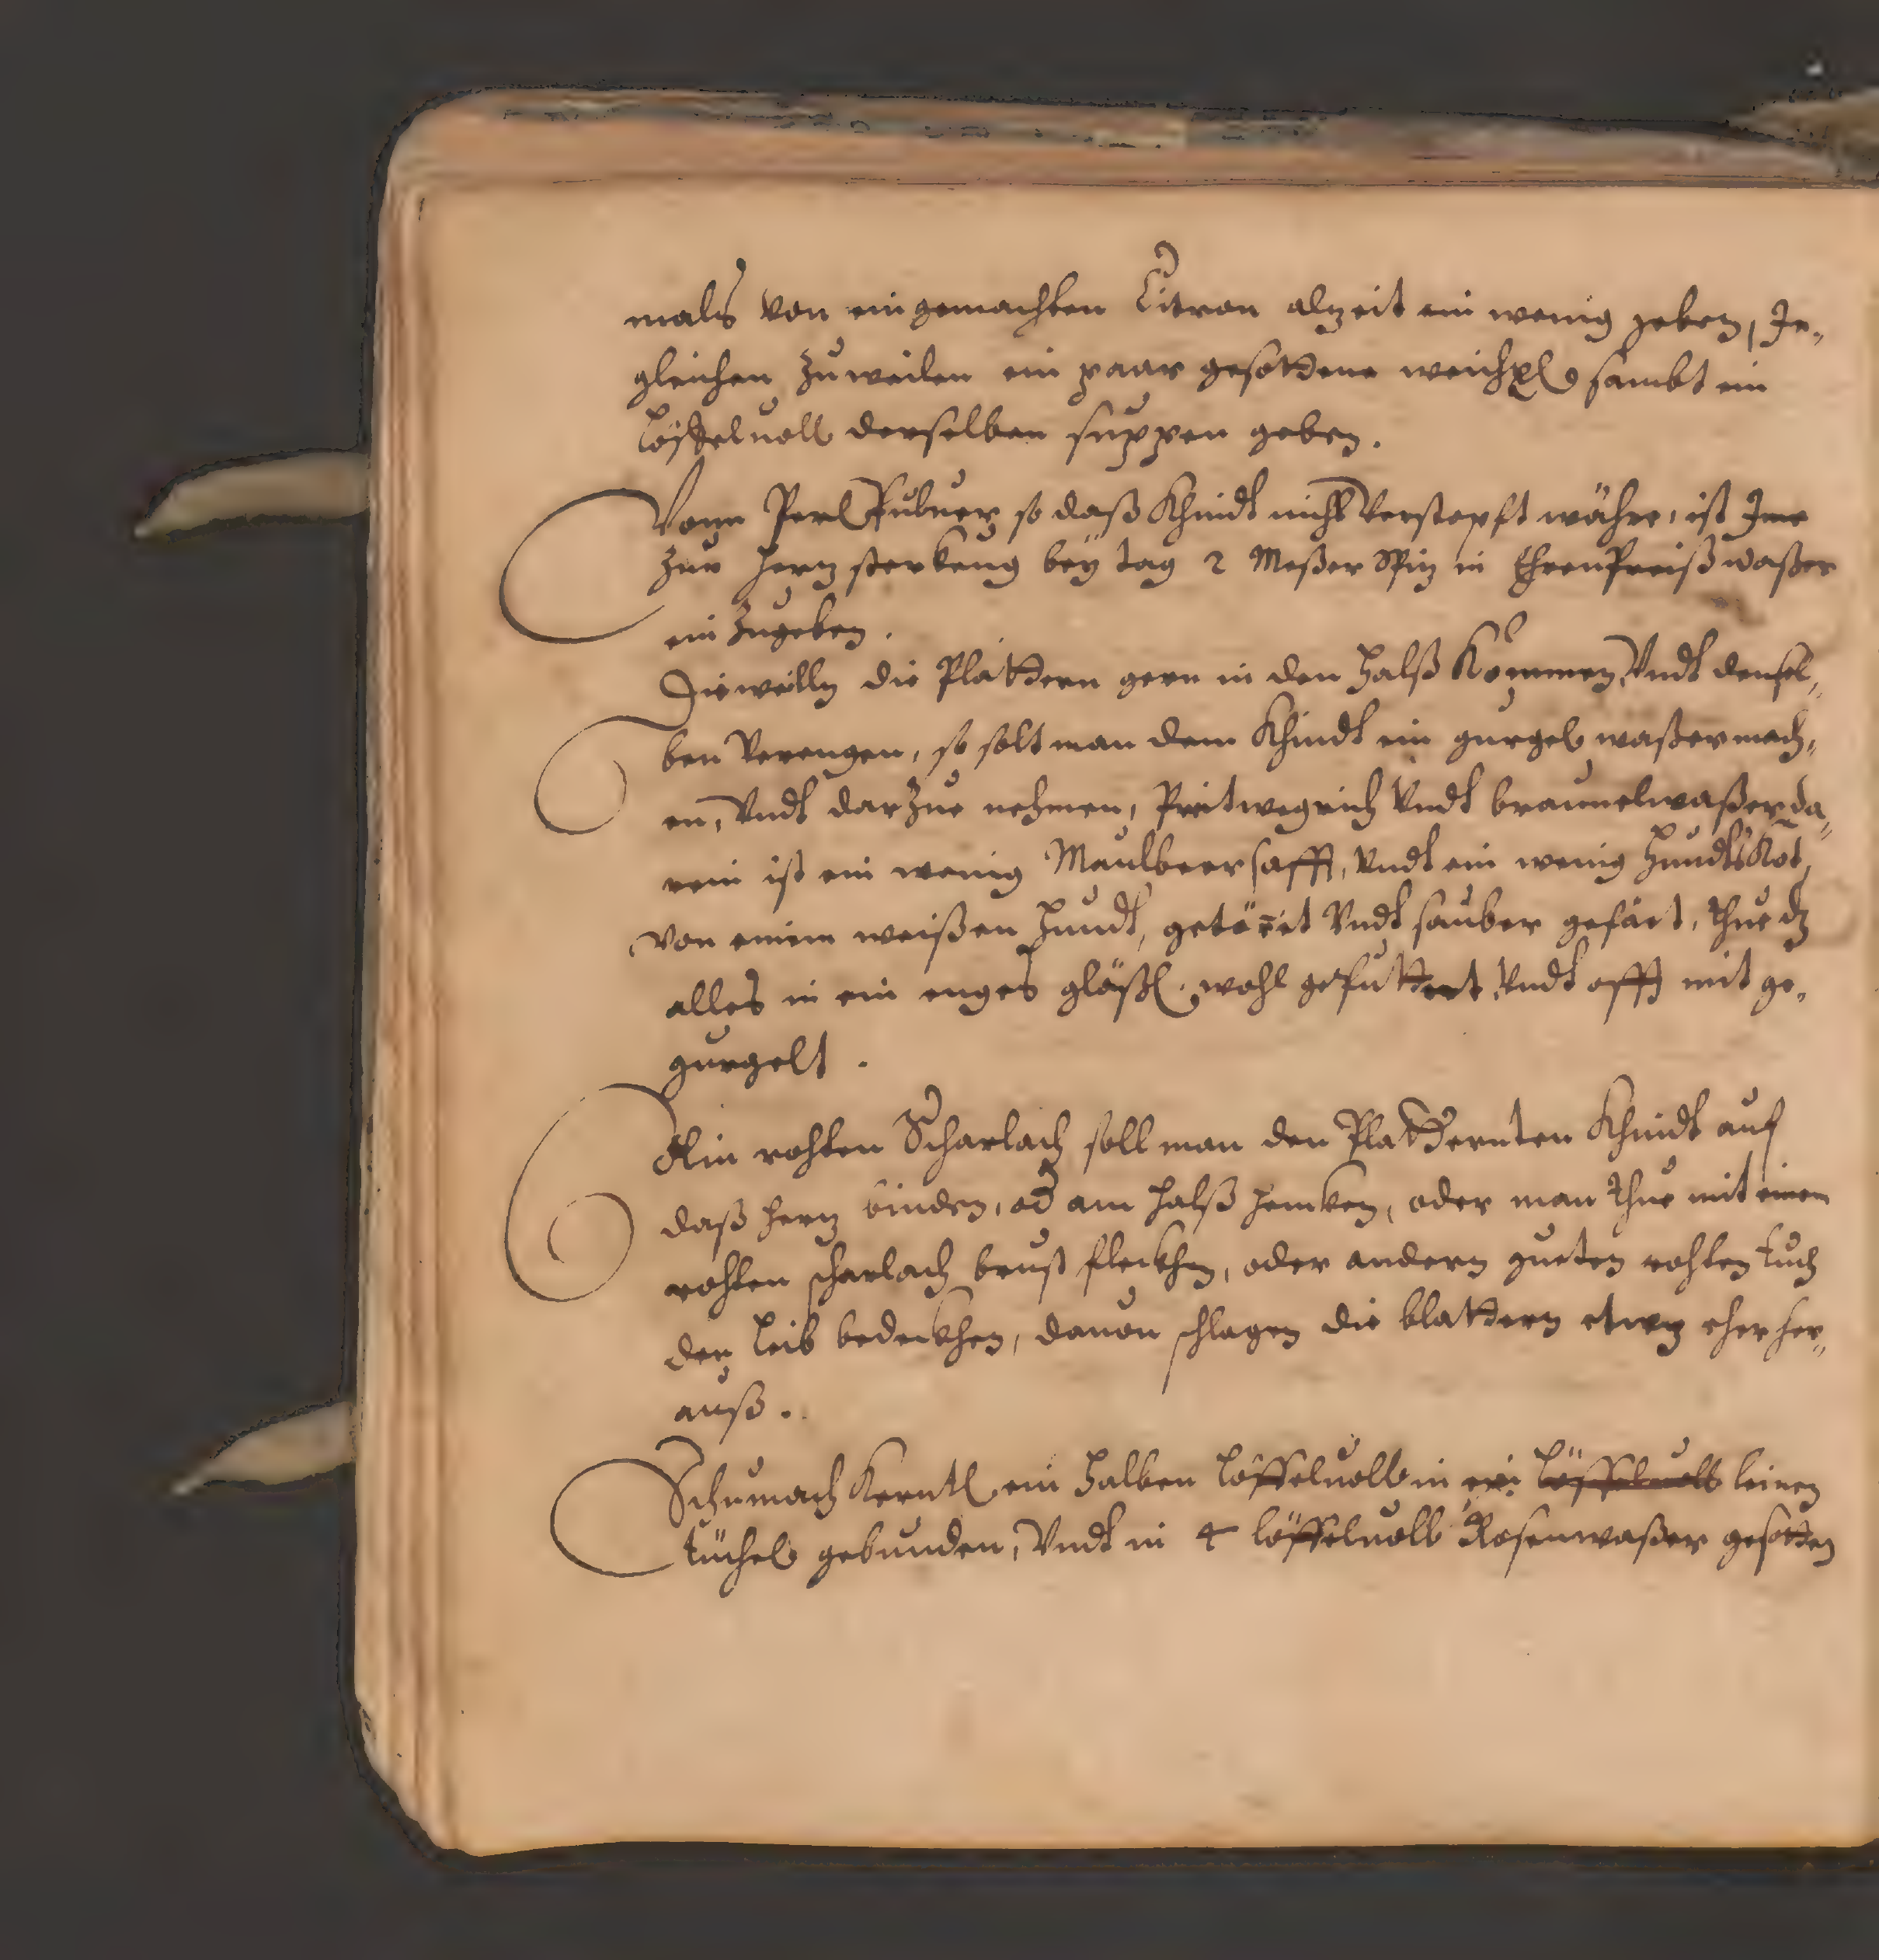 mals von ein gemachten Citron alzeit ein wenig geben, In„
gleichen zuweilen ein paar gesottene weichxl sambt ein
Löffeluoll derselben suppen geben.
Vonn Perl Puluer, so daß Khindt nicht verstopft währe, ist Ime
zur hertz sterkung bey tag 2 Meßer Spitz in EhrenPreiß waßer
ein zugeben.
Dieweilln die Plattern gern in den Halß Kommen, Vndt densel„
ben verengen, so solt man dem Khindt ein gurgel waßer mach„
en, Vndt darzue nehmen, Preitwegrich Vndt braunelwaßer, da„
rein ist ein wenig Maulbeer safft, Vndt ein wenig HundtsKot,
von einem weißen Hundt, getörrt Vndt sauber gefäet, thue dz
alles in ein enges gläßl, wohl Vndt offt mit ge„
gurgelt.
Ein rohten Scharlach soll man den Platternten Khindt auf
daß hertz binden, od am Halß hencken, oder man thue mit einem
rohten scharlach brust fleckhen, oder andern gueten rohten tuch
den Leib bedeckhen, dauon schlagen die blattern etwz eher her„
auß.
Schumach Kerntl ein halben Löffeluoll in ein Löffeluoll leinen
tüchel gebunden, Vndt in 4 löffeluoll Rosenwaßer gesotten